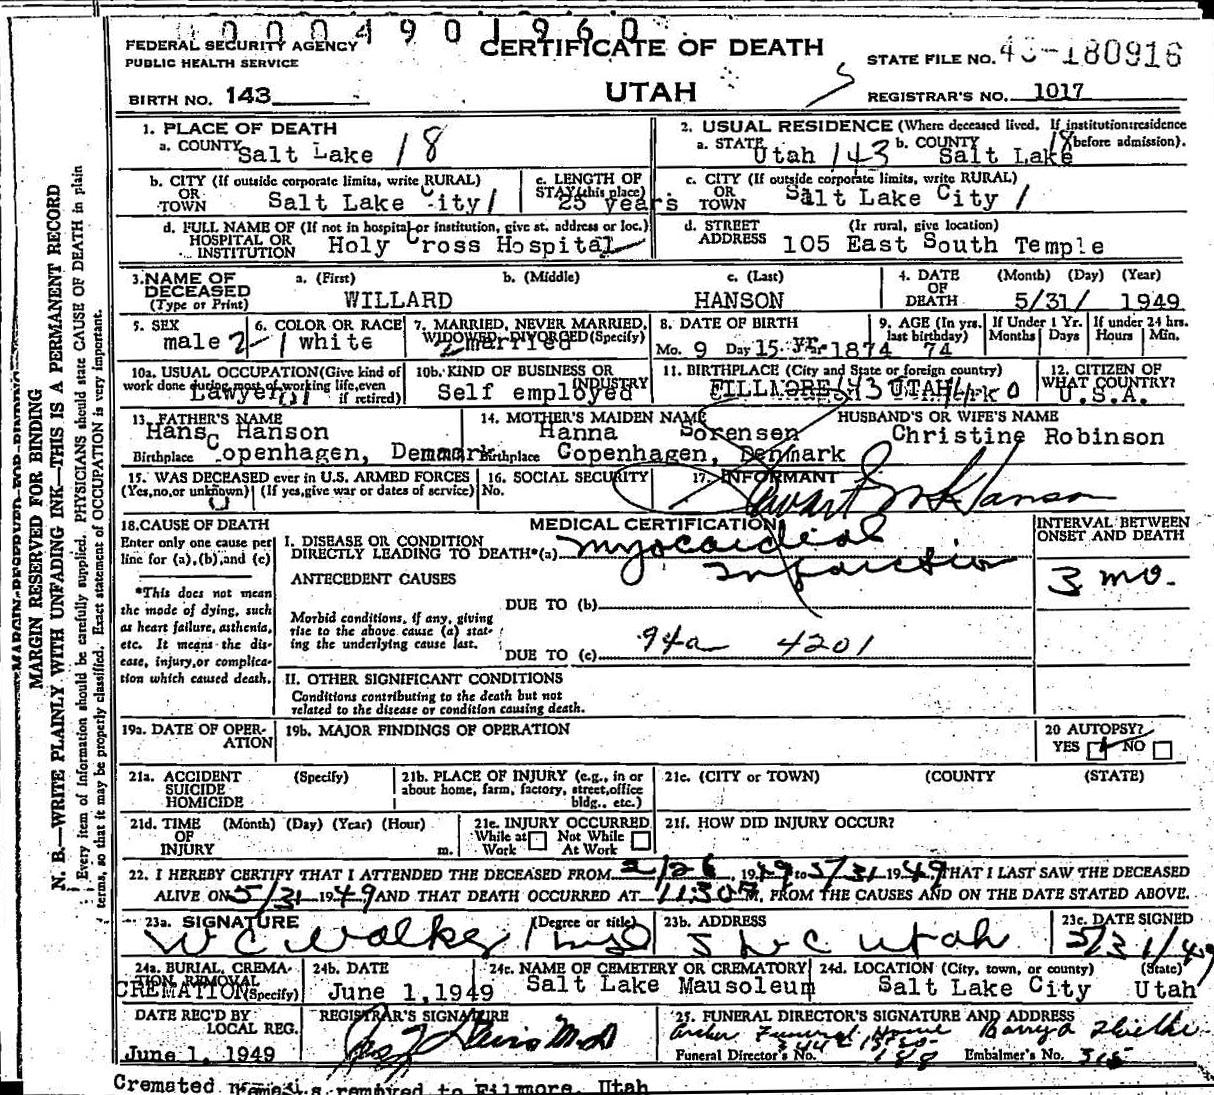 0004901960
FEDERAL SECURITY AGENCY
PUBLIC HEALTH SERVICE
CERTIFICATE OF DEATH
STATE FILE NO. 180916
BIRTH NO. 143
UTAH
REGISTRAR'S NO. 1017
MARGIN RESERVED FOR BINDING
N. B.—WRITE PLAINLY WITH UNFADING INK—THIS IS A PERMANENT RECORD
Every item of information should be carefully supplied. PHYSICIANS should state CAUSE OF DEATH in plain
terms, so that it may be properly classified. Exact statement of OCCUPATION is very important.
1. PLACE OF DEATH
a. COUNTY Salt Lake 18
2. USUAL RESIDENCE (Where deceased lived. If institution: residence
a. STATE Utah 143 b. COUNTY Salt Lake 18 before admission).
b. CITY (If outside corporate limits, write RURAL)
OR
TOWN Salt Lake City 1
c. LENGTH OF
STAY (this place)
25 years
c. CITY (If outside corporate limits, write RURAL)
OR
TOWN Salt Lake City 1
d. FULL NAME OF (If not in hospital or institution, give st. address or loc.)
HOSPITAL OR
INSTITUTION Holy Cross Hospital
d. STREET (If rural, give location)
ADDRESS 105 East South Temple
3. NAME OF DECEASED
(Type or Print)
a. (First) b. (Middle) c. (Last)
WILLARD HANSON
4. DATE OF DEATH (Month) (Day) (Year)
5/31/ 1949
5. SEX
male 2
6. COLOR OR RACE
1 white
7. MARRIED, NEVER MARRIED,
WIDOWED, DIVORCED (Specify)
2 married
8. DATE OF BIRTH
Mo. 9 Day 15 Yr. 1874
9. AGE (In yrs. last birthday)
74
If Under 1 Yr.
Months Days
If under 24 hrs.
Hours Min.
10a. USUAL OCCUPATION (Give kind of
work done during most of working life, even
if retired)
Lawyer
10b. KIND OF BUSINESS OR
INDUSTRY
Self employed
11. BIRTHPLACE (City and State or foreign country)
FILLMORE 43 UTAH
12. CITIZEN OF
WHAT COUNTRY?
U.S.A.
13. FATHER'S NAME
Hans C Hanson
Birthplace Copenhagen, Denmark
14. MOTHER'S MAIDEN NAME
Hanna Sorensen
Birthplace Copenhagen, Denmark
HUSBAND'S OR WIFE'S NAME
Christine Robinson
15. WAS DECEASED ever in U.S. ARMED FORCES
(Yes, no, or unknown) (If yes, give war or dates of service)
16. SOCIAL SECURITY
No.
17. INFORMANT
Stewart M Hanson
18. CAUSE OF DEATH
Enter only one cause per
line for (a), (b), and (c)
*This does not mean
the mode of dying, such
as heart failure, asthenia,
etc. It means the dis-
ease, injury, or complica-
tion which caused death.
MEDICAL CERTIFICATION
I. DISEASE OR CONDITION
DIRECTLY LEADING TO DEATH*(a) myocardial
infarction
ANTECEDENT CAUSES
DUE TO (b)
Morbid conditions, if any, giving
rise to the above cause (a) stat-
ing the underlying cause last.
94a 4201
DUE TO (c)
INTERVAL BETWEEN
ONSET AND DEATH
3 mo.
II. OTHER SIGNIFICANT CONDITIONS
Conditions contributing to the death but not
related to the disease or condition causing death.
19a. DATE OF OPER-
ATION
19b. MAJOR FINDINGS OF OPERATION
20 AUTOPSY?
YES NO
21a. ACCIDENT (Specify)
SUICIDE
HOMICIDE
21b. PLACE OF INJURY (e.g., in or
about home, farm, factory, street, office
bldg., etc.)
21c. (CITY or TOWN) (COUNTY (STATE)
21d. TIME (Month) (Day) (Year) (Hour)
OF
INJURY m.
21e. INJURY OCCURRED
While at Not While
Work At Work
21f. HOW DID INJURY OCCUR?
22. I HEREBY CERTIFY THAT I ATTENDED THE DECEASED FROM 2/26, 1949 to 5/31 1949 THAT I LAST SAW THE DECEASED
ALIVE ON 5/31 1949 AND THAT DEATH OCCURRED AT 11:30 M, FROM THE CAUSES AND ON THE DATE STATED ABOVE.
23a. SIGNATURE (Degree or title)
W C Walker
23b. ADDRESS
S L C Utah
23c. DATE SIGNED
5/31/49
24a. BURIAL, CREMA-
TION, REMOVAL
CREMATION (Specify)
24b. DATE
June 1, 1949
24c. NAME OF CEMETERY OR CREMATORY
Salt Lake Mausoleum
24d. LOCATION (City, town, or county) (State)
Salt Lake City Utah
DATE REC'D BY
LOCAL REG.
June 1, 1949
REGISTRAR'S SIGNATURE
25. FUNERAL DIRECTOR'S SIGNATURE AND ADDRESS
Funeral Home
Funeral Director's No. Embalmer's No. 315
Cremated remains removed to Filmore, Utah